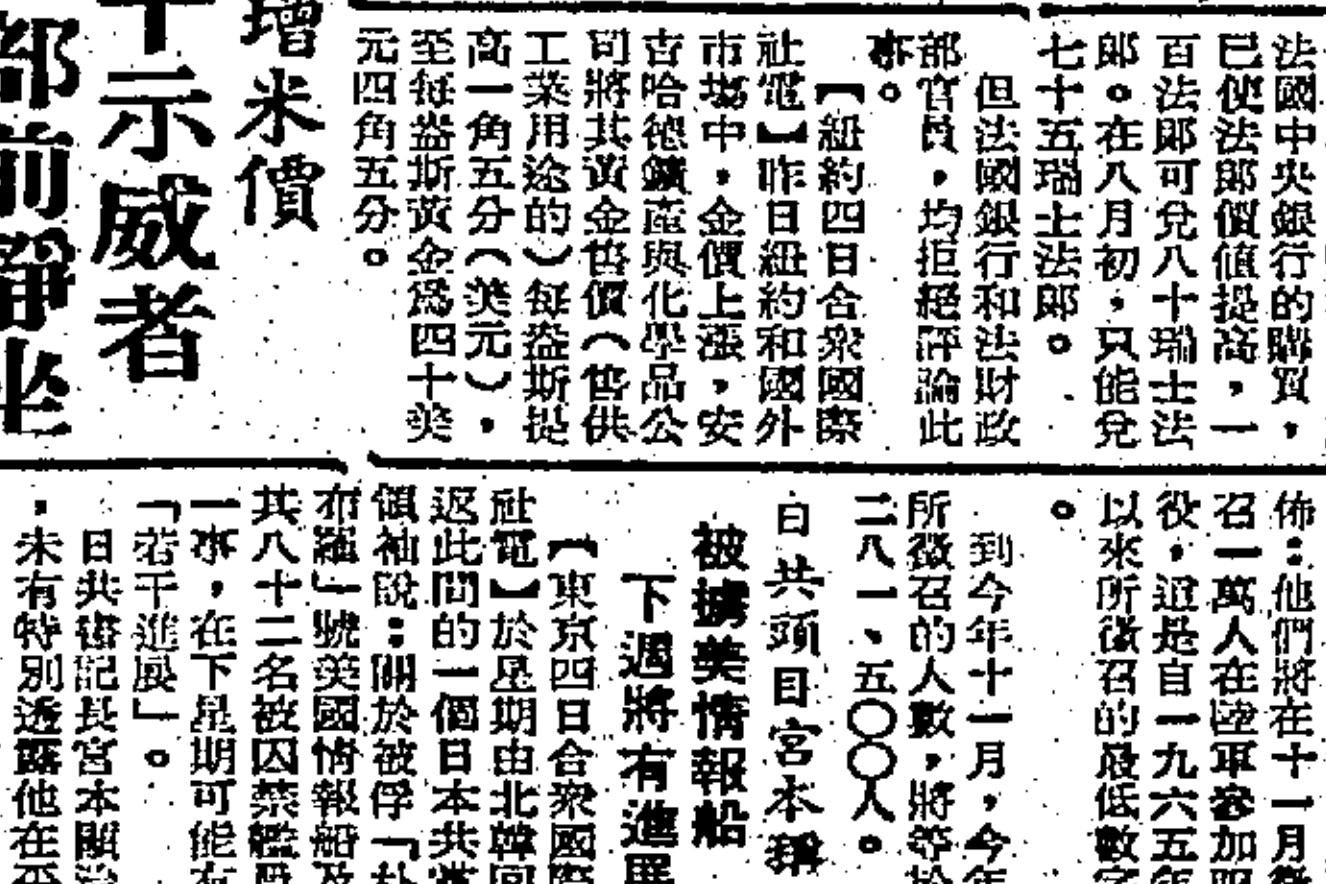 法國中央銀行的購買，
已使法郎價值提高，一
百法郎可兌八十瑞士法
郎。在八月初，只能兌
七十五瑞士法郎。
但法國銀行和法財政
部官員，均拒絕評論此
事。
【紐約四日合衆國際
社電】昨日紐約和國外
市塲中，金價上漲，安
吉哈德鑛產與化學品公
司將其黃金售價（售供
工業用途的）每盎斯提
高一角五分（美元），
至每盎斯黃金爲四十美
元四角五分。
增米價
千示威者
部前靜坐
佈：他們將在十一月徵
召一萬人在陸軍參加服
役，這是自一九六五年
以來所徵召的最低數字
。
到今年十一月，今年
所徵召的人數，將等於
二八一、五〇〇人。
日共頭目宮本稱
被擄美情報船
下週將有進展
【東京四日合衆國際
社電】於星期由北韓回
返此間的一個日本共黨
領袖說：關於被俘「朴
布羅」號美國情報船及
其八十二名被囚禁艦員
一事，在下星期可能有
「若干進展」。
日共書記長宮本顯治
，未有特別透露他在平